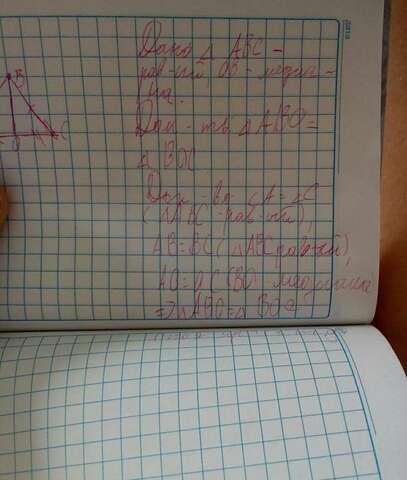 B
C
O
Дано △ ABC -
рав-ий, BO - медиа-
на.
Док-ть △ABO=
△ BOC
Док-во. ∠A=∠C
(△ABC-рав-ий),
AB=BC (△ABC рав-ий),
AO=OC (BO-медиана)
=>△ABO=△BOC